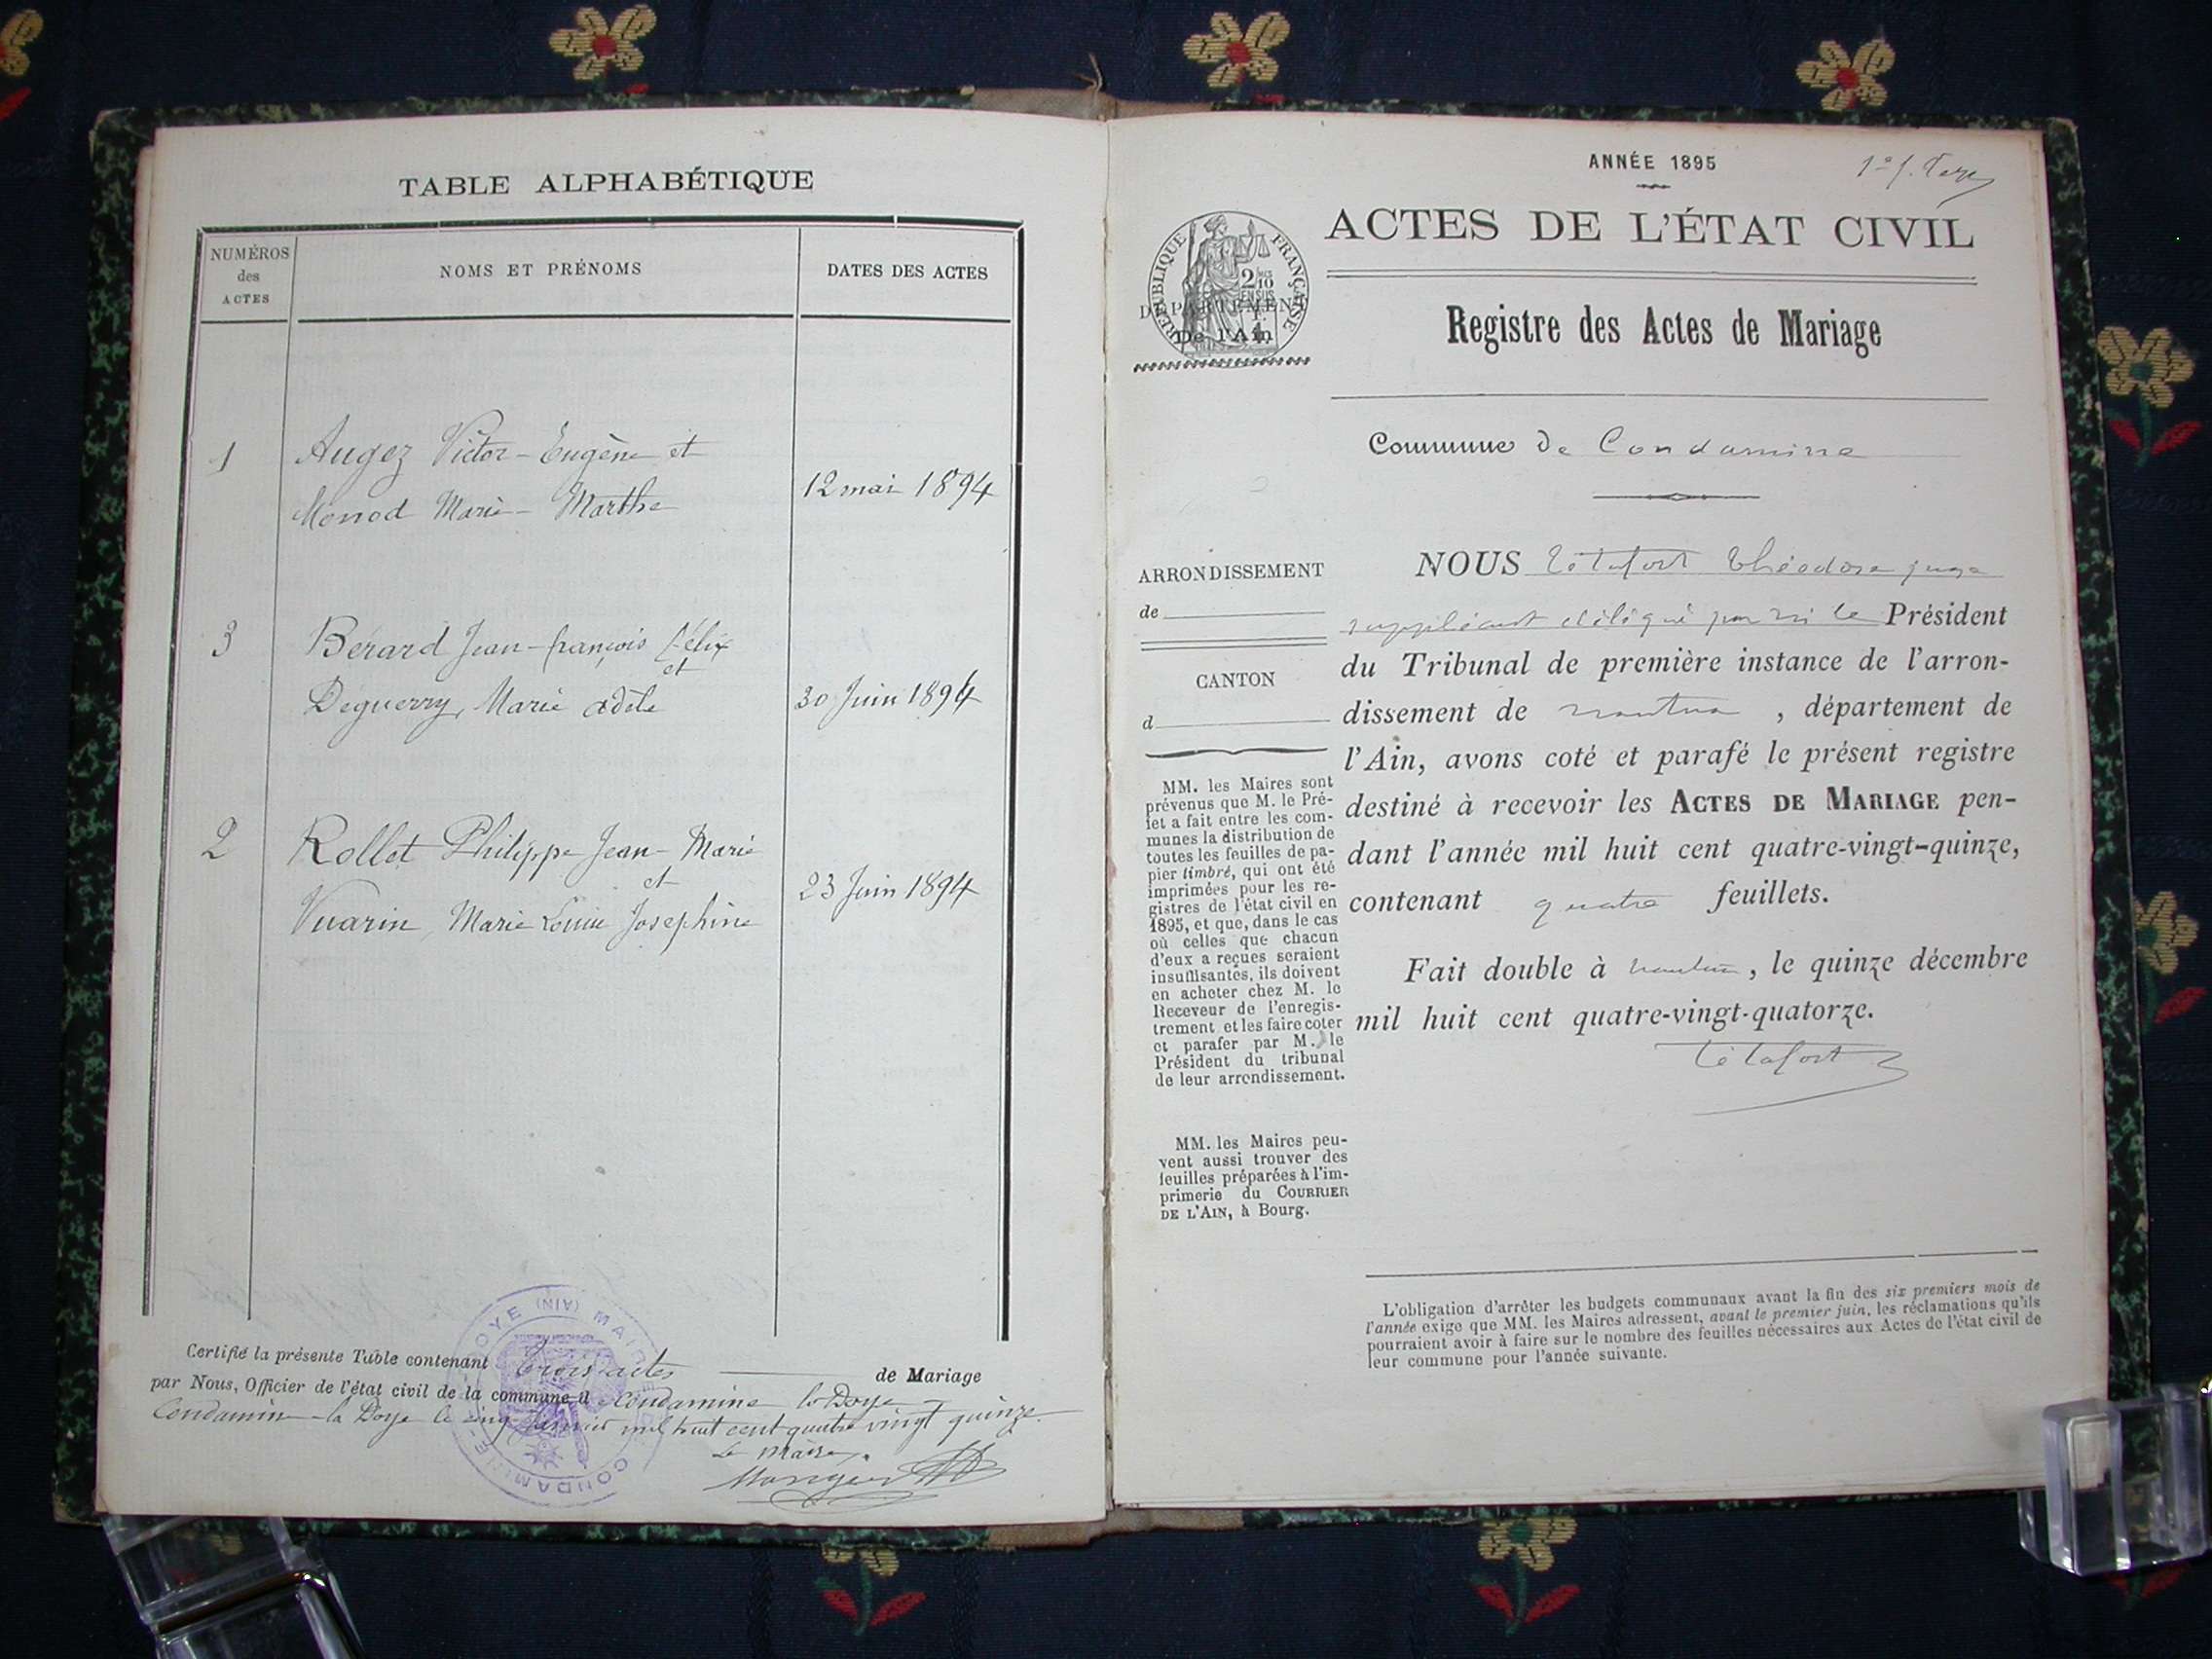 TABLE ALPHABÉTIQUE
NUMÉROS
des
ACTES
NOMS ET PRÉNOMS
DATES DES ACTES
1
Augez Victor-Eugène et
Monod Marie-Marthe
12 mai 1894
3
Bérard Jean-françois félix
et
Déguerry, Marie adèle
30 Juin 1894
2
Rollet Philippe Jean-Marie
et
Vuarin, Marie Louise Joséphine
23 Juin 1894
Certifié la présente Table contenant trois actes de Mariage
par Nous, Officier de l'état civil de la commune d Condamine la Doye
Condamine-la Doye le cinq Janvier mil huit cent quatre vingt quinze.
Le Maire,
MAIRIE
CONDAMINE-
DOYE (AIN)
ANNÉE 1895
ACTES DE L'ÉTAT CIVIL
RÉPUBLIQUE FRANÇAISE
2/10
EN SUS
DÉPARTEMENT
De l'Ain
Registre des Actes de Mariage
Commune de Condamine
ARRONDISSEMENT
de
CANTON
d
MM. les Maires sont
prévenus que M. le Pré-
fet a fait entre les com-
munes la distribution de
toutes les feuilles de pa-
pier timbré, qui ont été
imprimées pour les re-
gistres de l'état civil en
1895, et que, dans le cas
où celles que chacun
d'eux a reçues seraient
insuffisantes, ils doivent
en acheter chez M. le
Receveur de l'enregis-
trement et les faire coter
et parafer par M. le
Président du tribunal
de leur arrondissement.
MM. les Maires peu-
vent aussi trouver des
feuilles préparées à l'im-
primerie du COURRIER
DE L'AIN, à Bourg.
NOUS Tétafort Théodore juge
suppléant délégué par Mr le Président
du Tribunal de première instance de l'arron-
dissement de nantua , département de
l'Ain, avons coté et parafé le présent registre
destiné à recevoir les ACTES DE MARIAGE pen-
dant l'année mil huit cent quatre-vingt-quinze,
contenant quatre feuillets.
Fait double à nantua, le quinze décembre
mil huit cent quatre-vingt-quatorze.
Tétafort
L'obligation d'arrêter les budgets communaux avant la fin des six premiers mois de
l'année exige que MM. les Maires adressent, avant le premier juin, les réclamations qu'ils
pourraient avoir à faire sur le nombre des feuilles nécessaires aux Actes de l'état civil de
leur commune pour l'année suivante.